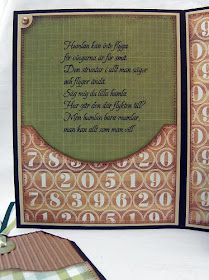 Humlan kan inte flyga
för vingarna är för små.
Den struntar i allt man säger
och flyger ändå.
Säg mig du lilla humla
Hur går den där flykten till?
Men humlan bara mumlar,
man kan allt som man vill